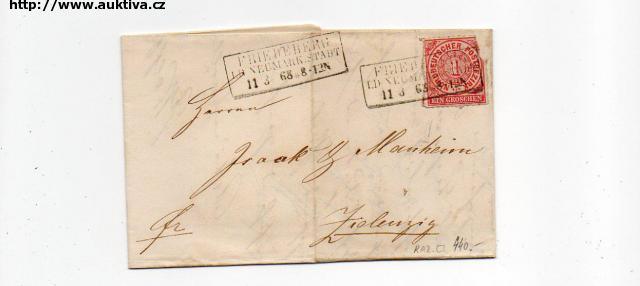 http://www.auktiva.cz
FRIEDEBERG
I.D. NEUMARK. STADT
11 3 68 8-12N
FRIED
I.D. NEUMAR
11 3 68 8-12N
NORDDEUTSCHER POSTBEZIRK
1
EIN GROSCHEN
Herren
Isaak & Manheim
fr
Zielenzig
RAZ.
440.-